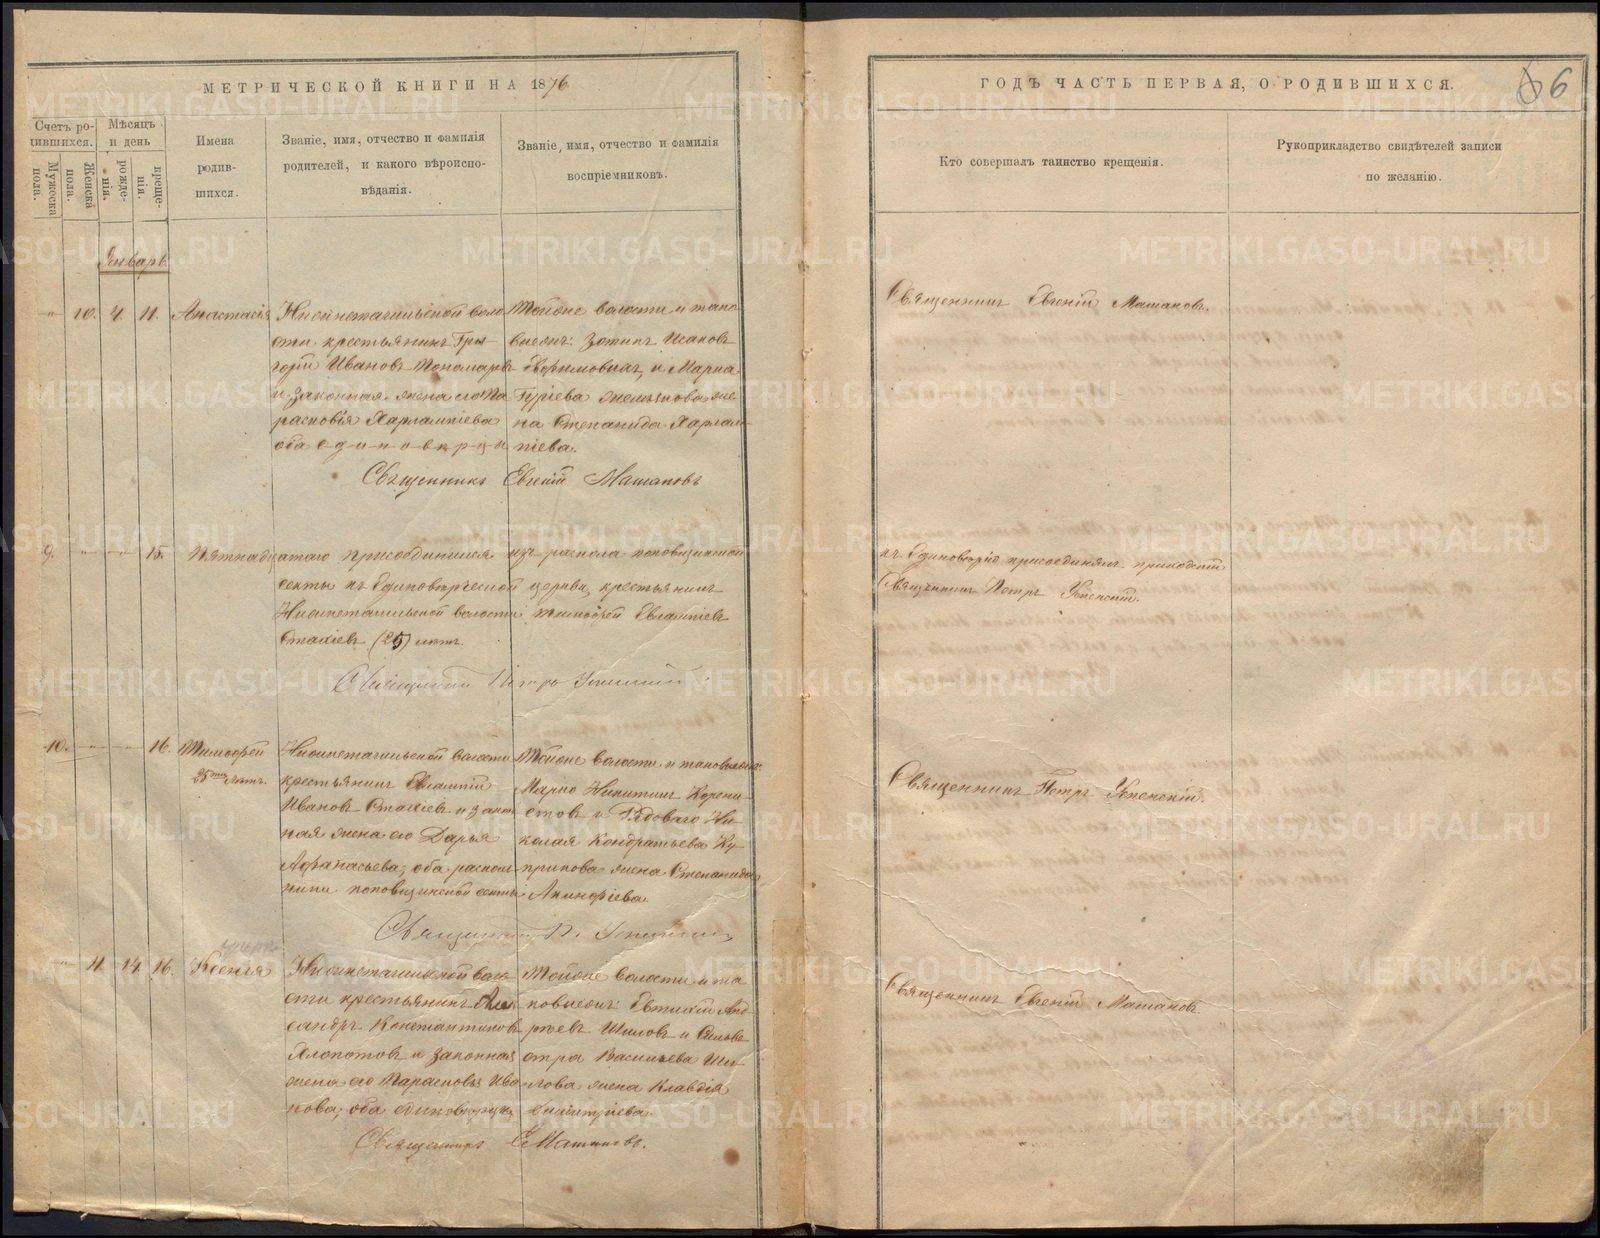 МЕТРИЧЕСКОЙ КНИГИ НА 1876
ГОДЪ ЧАСТЬ ПЕРВАЯ, О РОДИВШИХСЯ.
6
Счетъ ро-
дившихся.
Мужеска
пола.
Женска
пола.
Мѣсяцъ
и день
рожде-
нія.
креще-
нія.
Имена
родив-
шихся.
Званіе, имя, отчество и фамилія
родителей, и какого вѣроиспо-
вѣданія.
Званіе, имя, отчество и фамилія
воспріемниковъ.
Кто совершалъ таинство крещенія.
Рукоприкладство свидѣтелей записи
по желанію.
Январь
10. 4. 11. Анастасія
Нижнетагильской воло
сти крестьянинъ Гри
горій Ивановъ Пономаревъ
и законная жена его Па
расковья Харлампіева
оба единовѣрцы
Тойже волости и тако
выеже: Зотикъ Исаковъ
и Марка
Гуріева жена
на Степанида Харлам
піева.
Священникъ Евгеній Машановъ
Священникъ Евгеній Машановъ.
9. 15. Пятнадцатаго присоединился изъ раскола поповщинской
секты къ Единовѣрческой церкви, крестьянинъ
Нижнетагильской волости Тимофей Евлампіевъ
Стахіевъ (25) лѣтъ.
Священникъ Петръ Успенскій
къ Единовѣрію присоединялъ приходскій
Священникъ Петръ Успенскій.
10. 16. Тимофей
25ти лѣтъ.
Нижнетагильской волости
крестьянинъ Евлампій
Ивановъ Стахіевъ и закон
ная жена его Дарья
Афанасьева, оба расколь
ники поповщинской секты
Тойже волости и таковыеже:
Марко Никитинъ Корени
стовъ и Рядоваго Ни
колая Кондратьева Ку
прикова жена Степанида
Акинфіева.
Священникъ П. Успенскій
Священникъ Петръ Успенскій.
11. 14. 16. Ксенія
Нижнетагильской воло
сти крестьянинъ Алек
сандръ Константиновъ
Хлопотовъ и законная
жена его Парасковья Ива
нова, оба единовѣрцы
Тойже волости и та
ковыеже: Евтихій Анд
реевъ Шиловъ и Сильве
стра Васильева Ши
лова жена Клавдія
Димитріева.
Священникъ Е Машановъ.
Священникъ Евгеній Машановъ.
METRIKI.GASO-URAL.RU